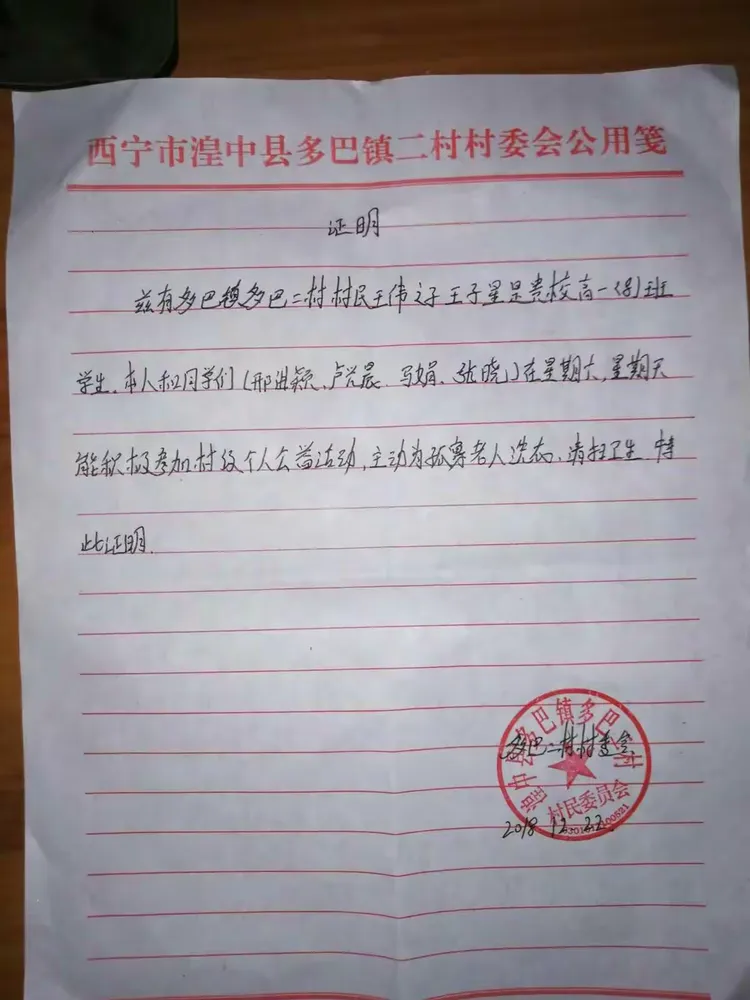 西宁市湟中县多巴镇二村村委会公用笺
证明
兹有多巴镇多巴二村村民王伟之子王子星是贵校高一(8)班
学生、本人和同学们(邢洪颖、卢兴晨、马娟、张晓)在星期六,星期天
能积极参加村级个人公益活动,主动为孤寡老人洗衣、清扫卫生 特
此证明.
湟中县多巴镇多巴二村
多巴二村村委会
村民委员会
2018.12.22.